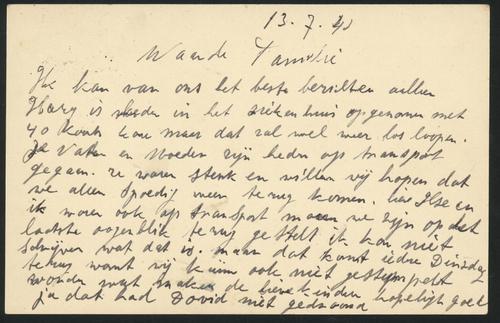 13.7.43
Waarde Familie
Ik kan van ons het beste berichten alleen
Harry is heden in het ziekenhuis opgenomen met
40 koorts maar dat zal wel weer los loopen.
Je Vader en Moeder zijn heden op transport
gegaan. ze waren sterk en willen wij hopen dat
we allen spoedig weer terug komen. Ilse en
ik waren ook op transport maar we zijn op het
laatste oogenblik terug gesteld ik kan niet
schrijven wat dat is. maar dat komt iedre Dinsdag
terug want wij kunnen ook niet gestempelt
worden de lieve kinderen
ja dat had David niet gedroomd hopelijk gaat